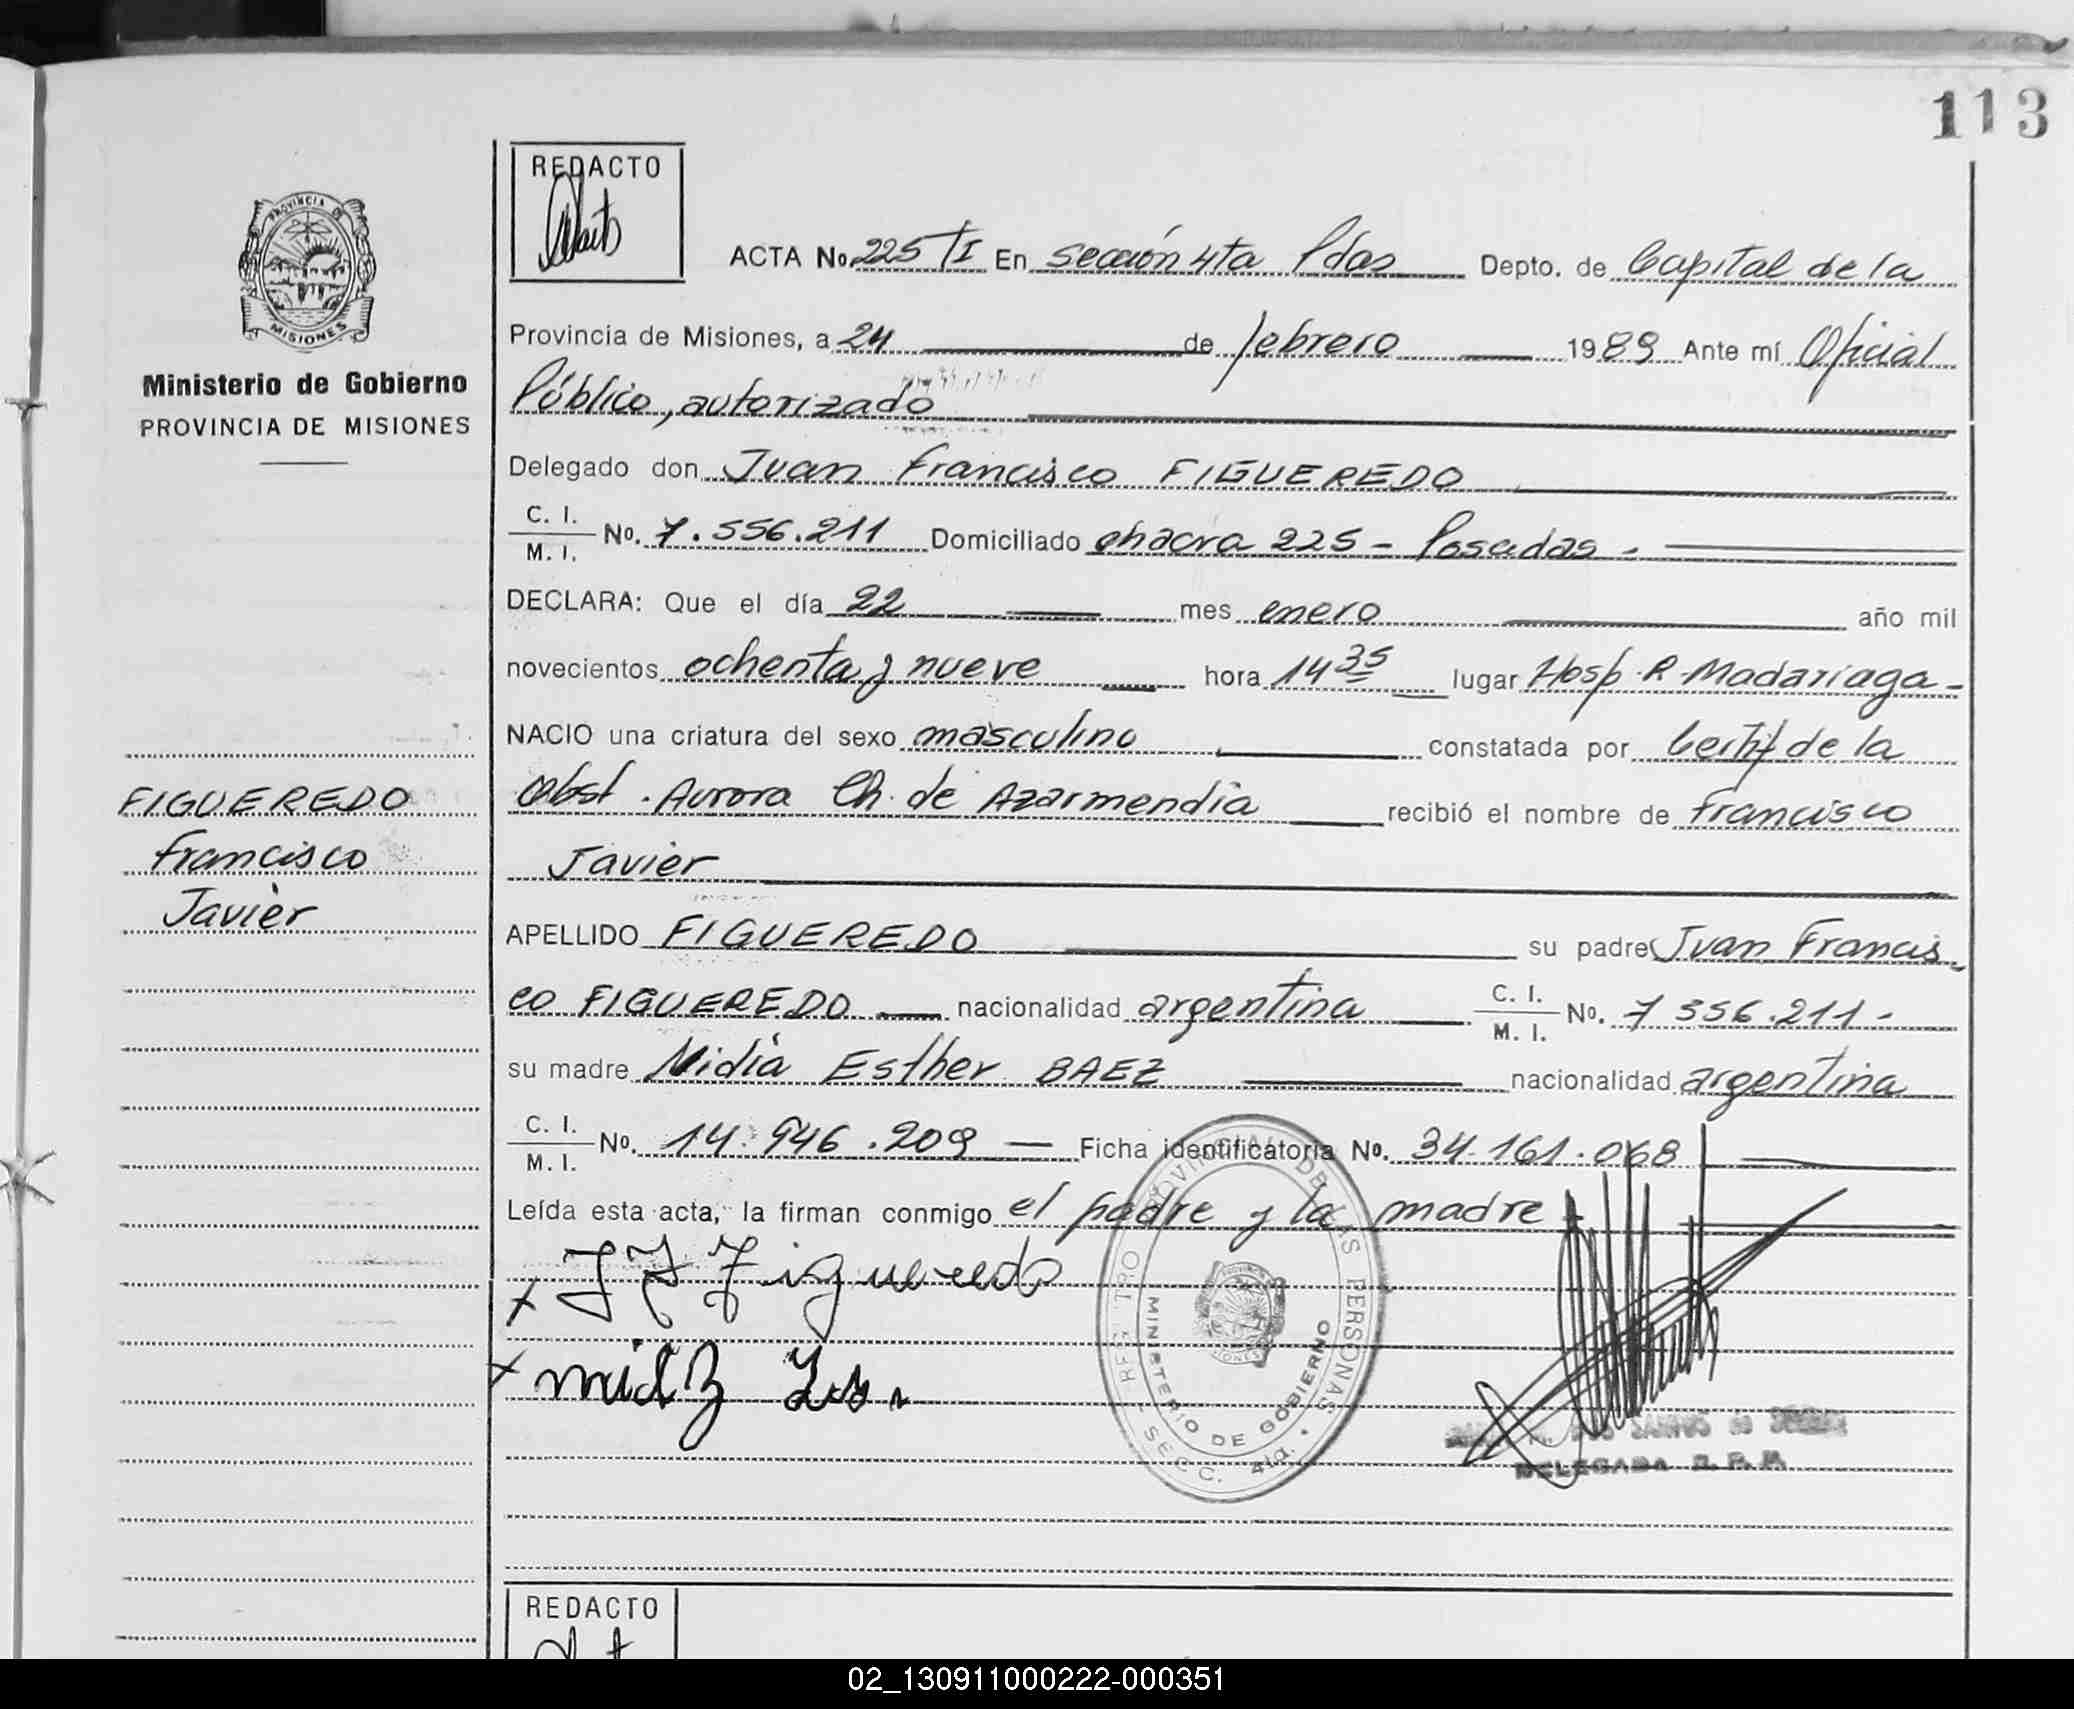 113
REDACTO
ACTA No. 225 TI En Sección 4ta Pdas Depto. de Capital de la
PROVINCIA DE
MISIONES
Provincia de Misiones, a 24 de febrero 1989 Ante mí Oficial
Ministerio de Gobierno
PROVINCIA DE MISIONES
Público, autorizado
Delegado don Juan Francisco FIGUEREDO
C. I.
M. I.
No. 7.556.211 Domiciliado chacra 225 - Posadas -
DECLARA: Que el día 22 mes enero año mil
novecientos ochenta y nueve hora 14 35 lugar Hosp. R. Madariaga -
NACIO una criatura del sexo masculino constatada por Certif de la
Obst. Aurora Ch. de Azarmendia recibió el nombre de Francisco
Javier
FIGUEREDO
Francisco
Javier
APELLIDO FIGUEREDO su padre Juan Francis-
co FIGUEREDO nacionalidad argentina C. I.
M. I.
No. 7 556.211 -
su madre Nidia Esther BAEZ nacionalidad argentina
C. I.
M. I.
No. 14.946.209 Ficha identificatoria No. 34.161.068
Leída esta acta, la firman conmigo el padre y la madre -
x J J Figueredo
x
REGISTRO PROVINCIAL DE LAS PERSONAS
MINISTERIO DE GOBIERNO
SECC. 4ta.
DELEGADA R. P. P.
REDACTO
02_130911000222-000351